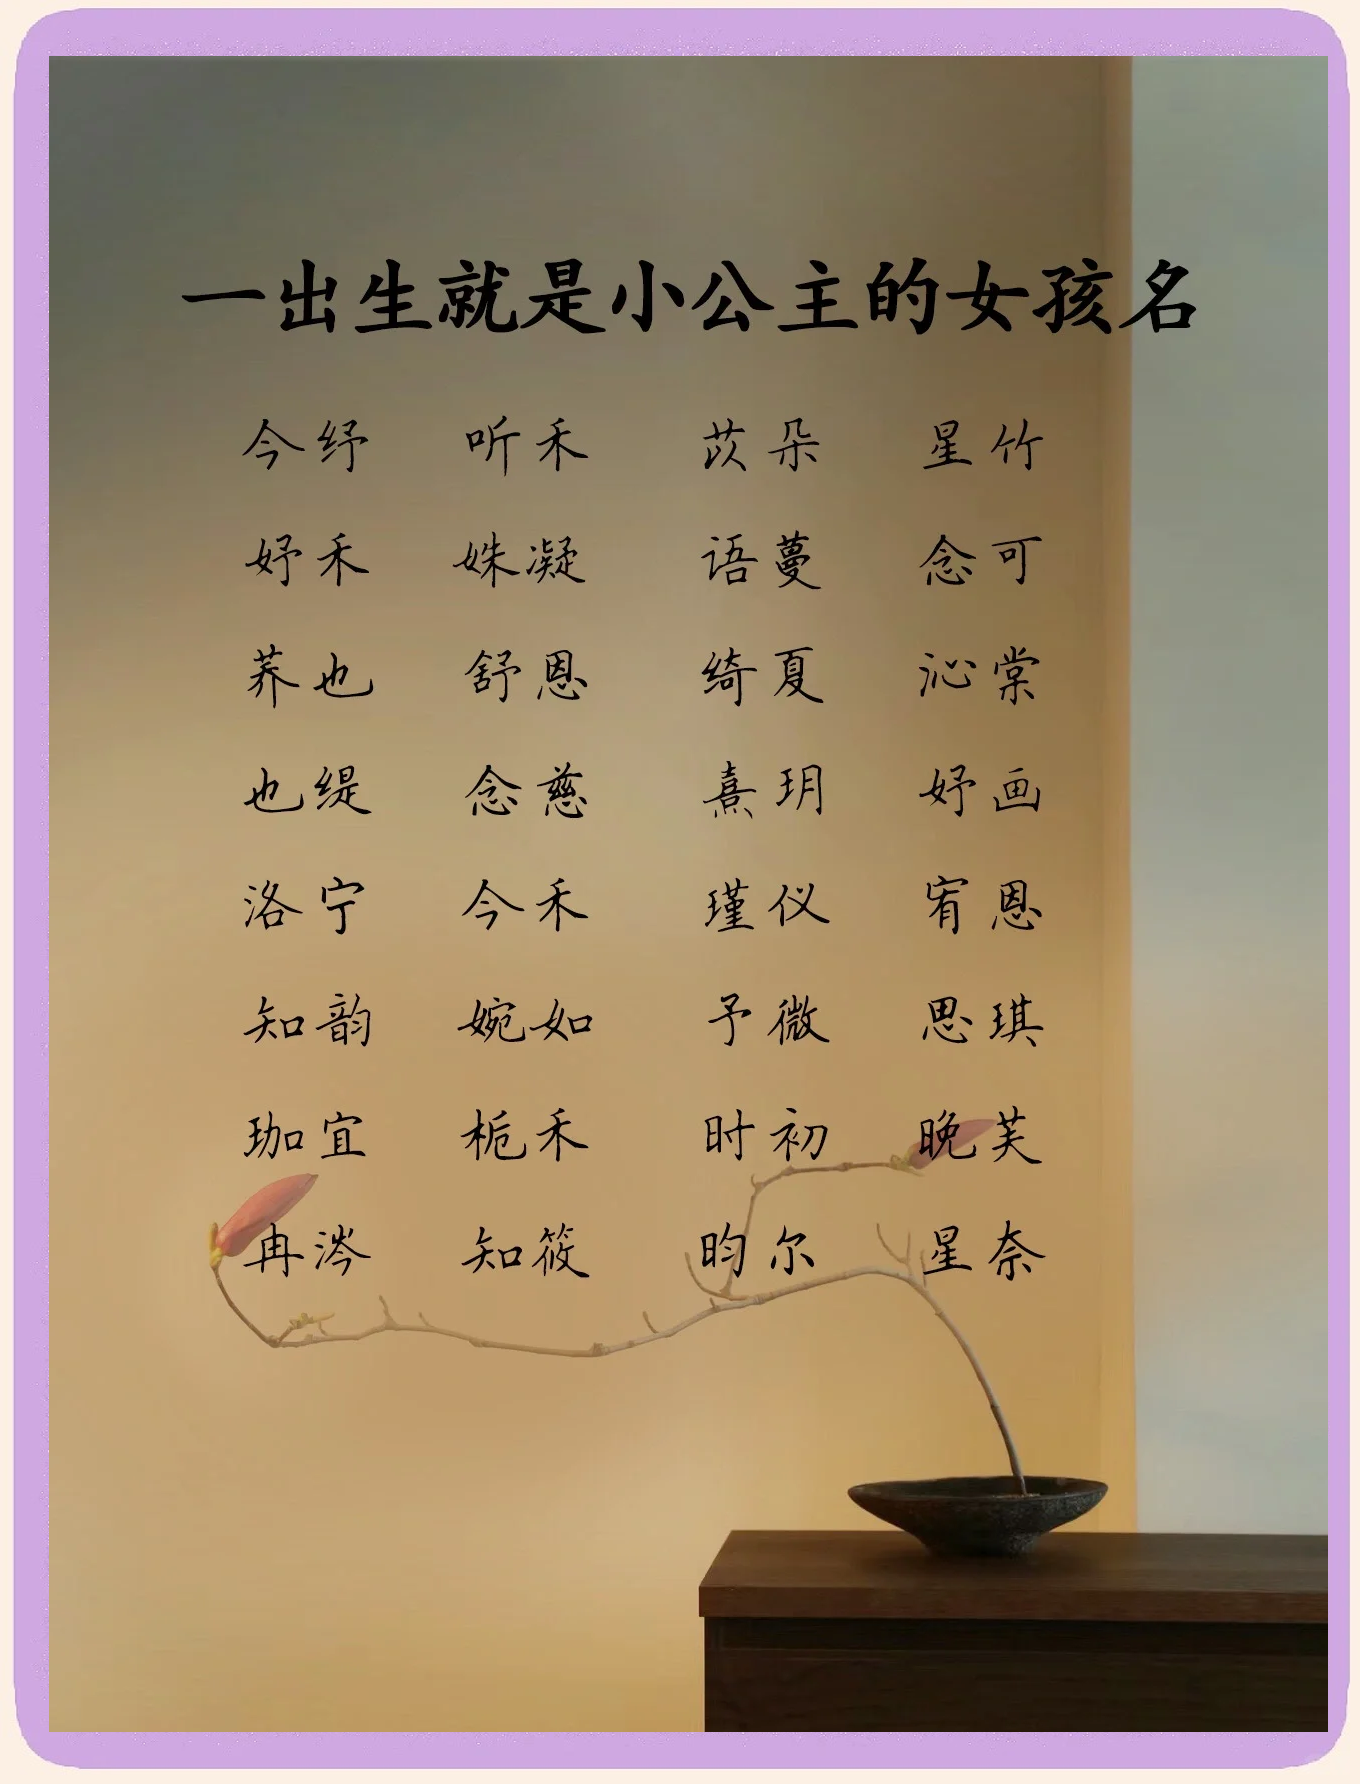 一出生就是小公主的女孩名
今纾 听禾 苡朵 星竹
妤禾 姝凝 语蔓 念可
荞也 舒恩 绮夏 沁棠
也缇 念慈 熹玥 妤画
洛宁 今禾 瑾仪 宥恩
知韵 婉如 予微 思琪
珈宜 栀禾 时初 晚芙
冉涔 知筱 昀尔 星奈